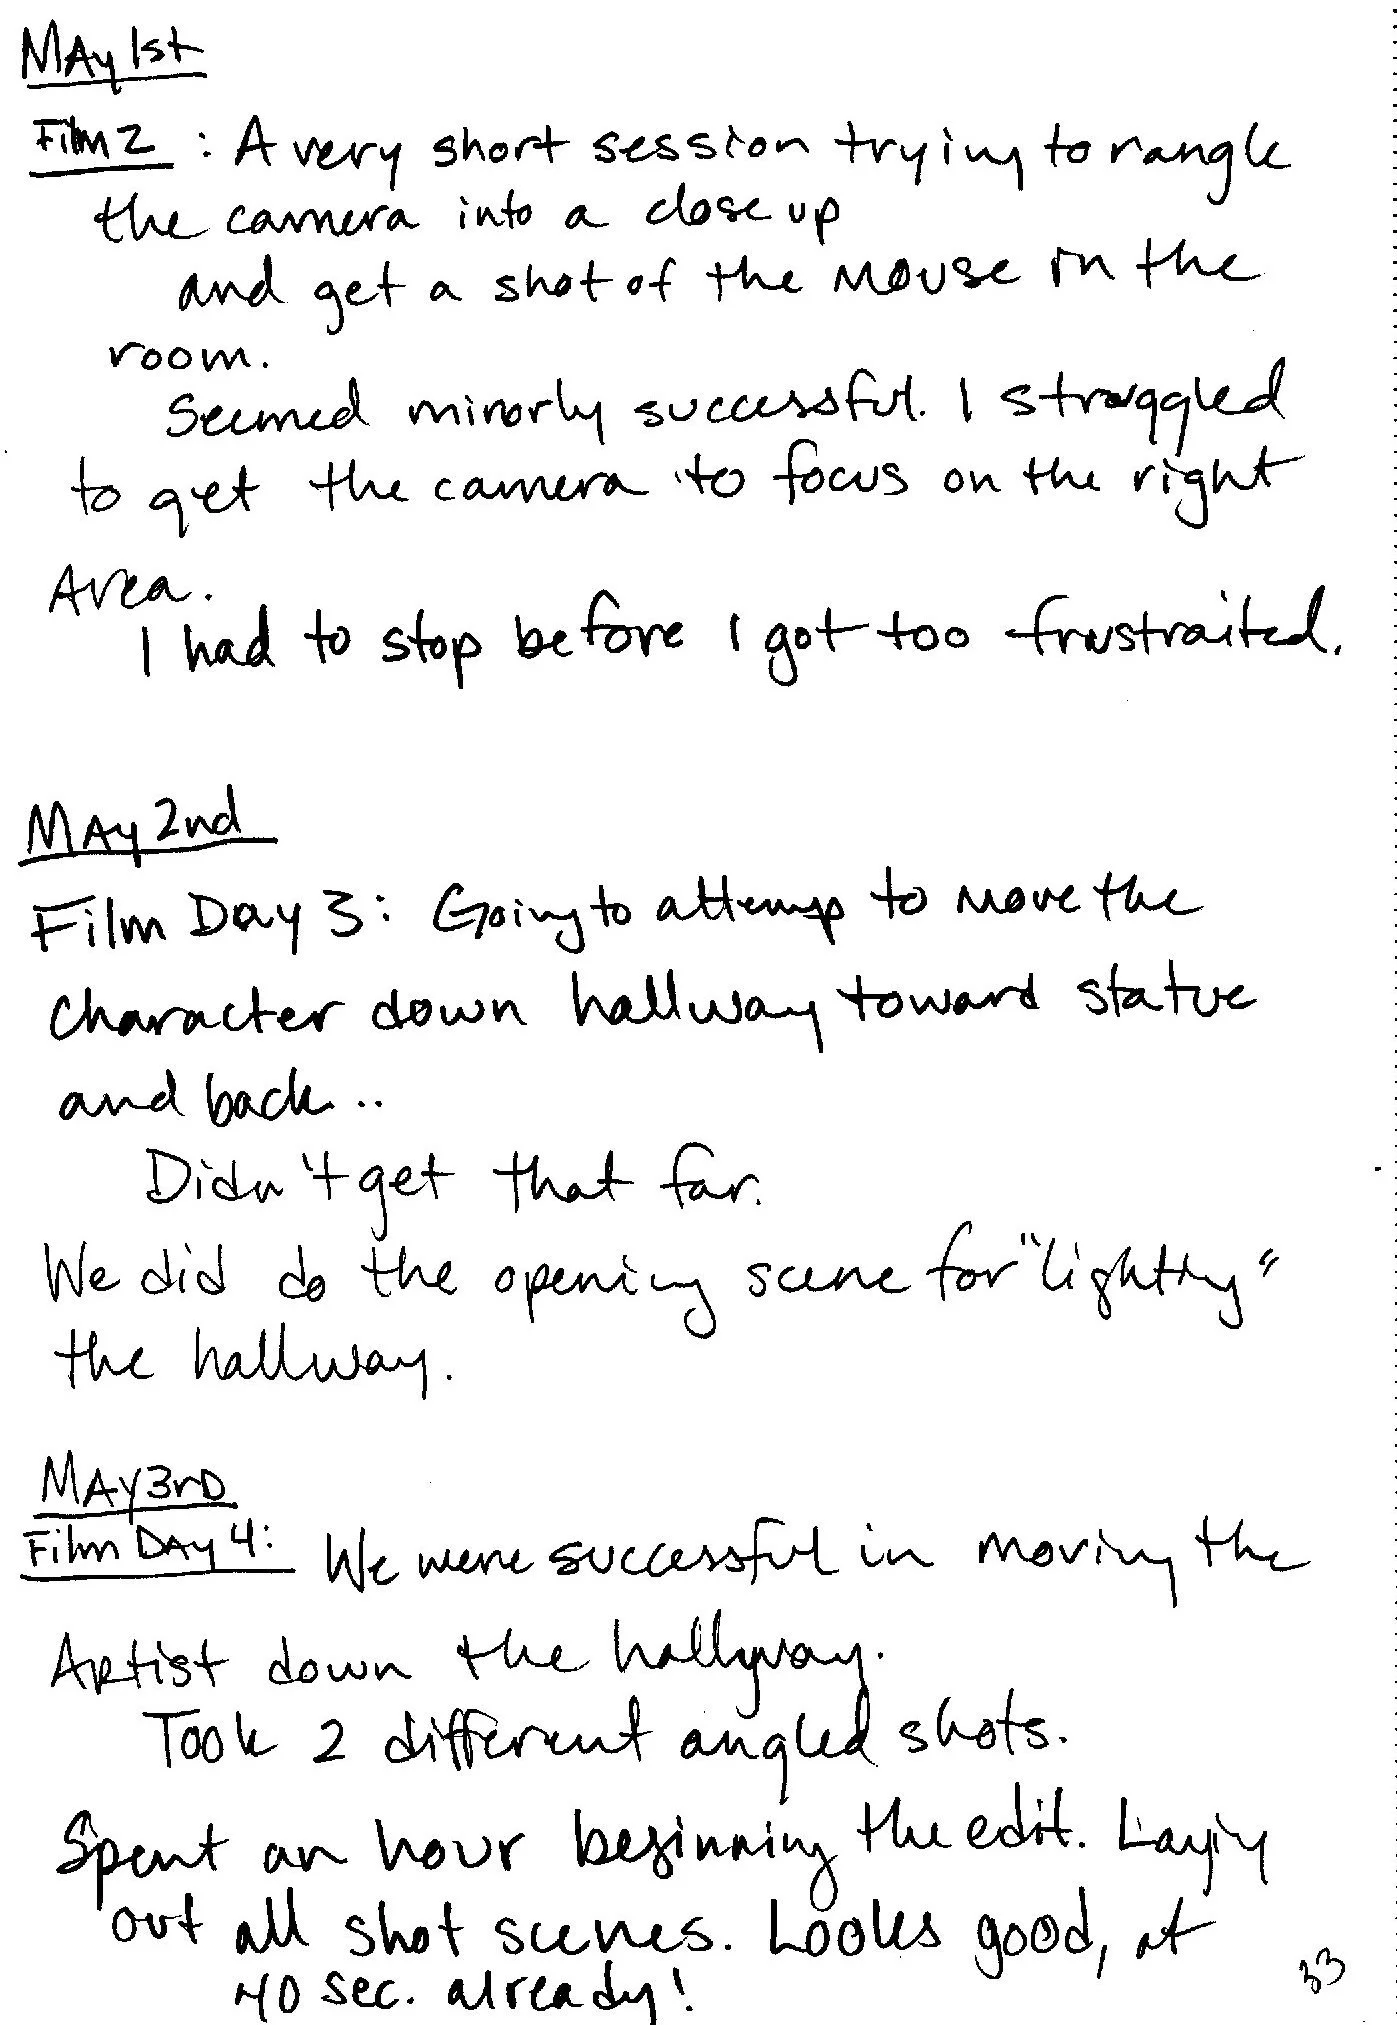 MAy 1st
Film 2 : A very short session trying to rangle
the camera into a close up
and get a shot of the mouse in the
room.
Seemed minorly successful. I struggled
to get the camera to focus on the right
Area.
I had to stop before I got too frustraited.
MAy 2nd
Film Day 3: Going to attemp to move the
character down hallway toward statue
and back..
Didn't get that far.
We did do the opening scene for "lighting"
the hallway.
MAY 3rD
Film DAy 4: We were successful in moving the
Artist down the hallyway.
Took 2 different angled shots.
Spent an hour beginning the edit. Laying
out all shot scenes. Looks good, at
40 sec. already!
33